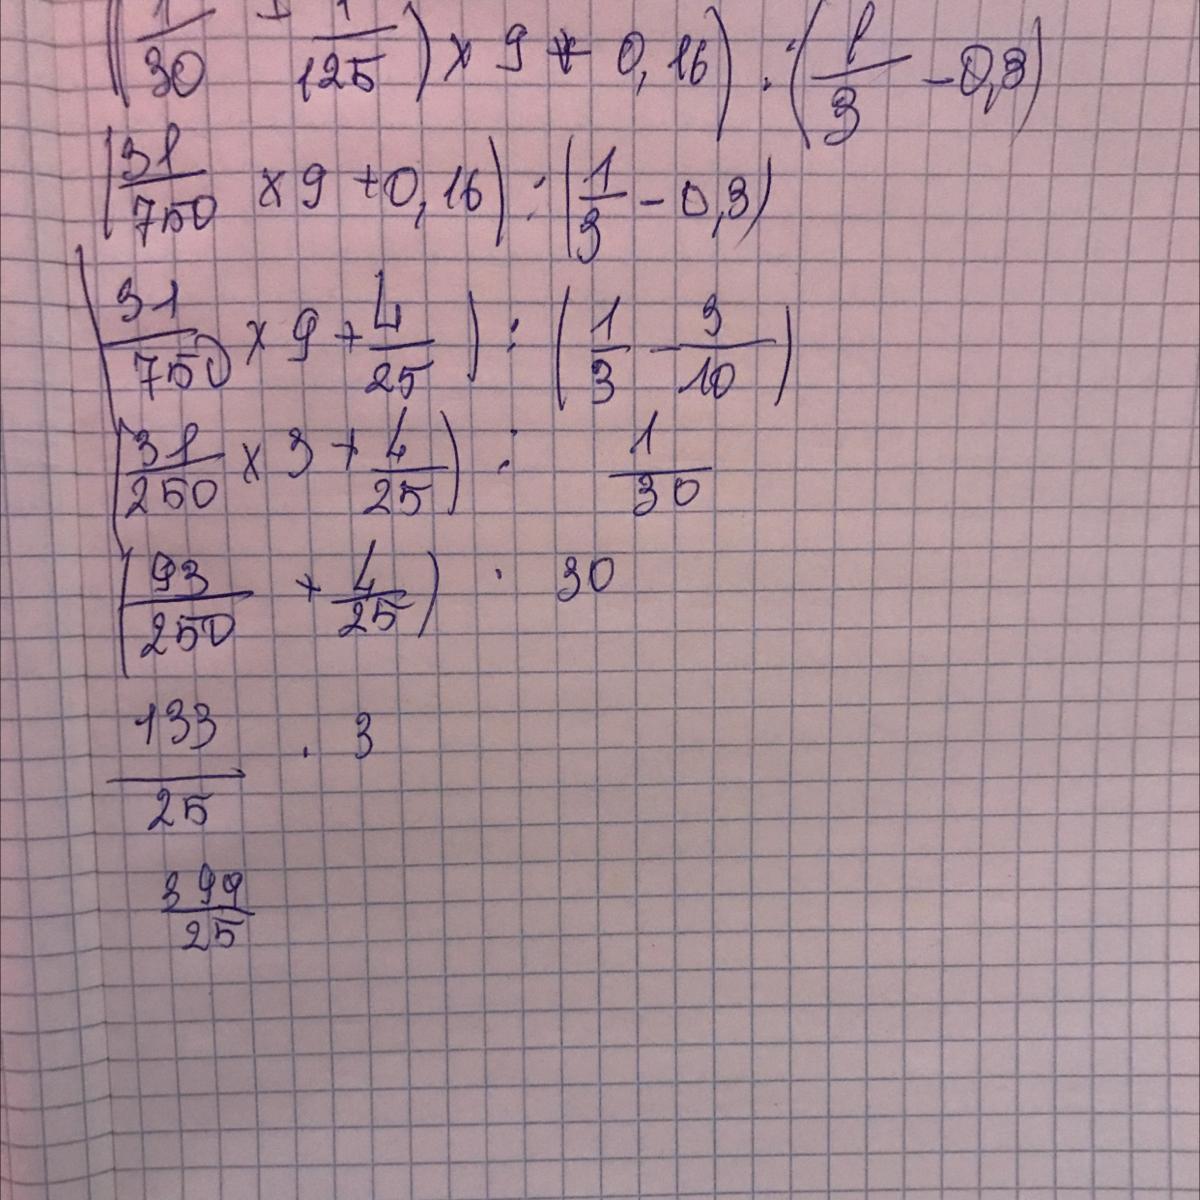 ((1/30 + 1/125) × 9 + 0,16) : (1/3 - 0,3)
(31/750 × 9 + 0,16) : (1/3 - 0,3)
(31/750 × 9 + 4/25) : (1/3 - 3/10)
(31/250 × 3 + 4/25) : 1/30
(93/250 + 4/25) · 30
133/25 · 3
399/25